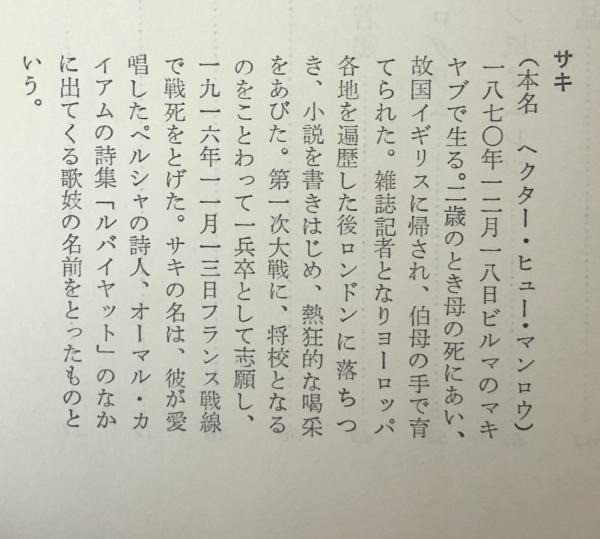 サキ
(本名 ヘクター・ヒュー・マンロウ)
一八七〇年一二月一八日ビルマのマキ
ヤブで生る。二歳のとき母の死にあい、
故国イギリスに帰され、伯母の手で育
てられた。雑誌記者となりヨーロッパ
各地を遍歴した後ロンドンに落ちつ
き、小説を書きはじめ、熱狂的な喝采
をあびた。第一次大戦に、将校となる
のをことわって一兵卒として志願し、
一九一六年一一月一三日フランス戦線
で戦死をとげた。サキの名は、彼が愛
唱したペルシャの詩人、オーマル・カ
イアムの詩集「ルバイヤット」のなか
に出てくる歌妓の名前をとったものと
いう。